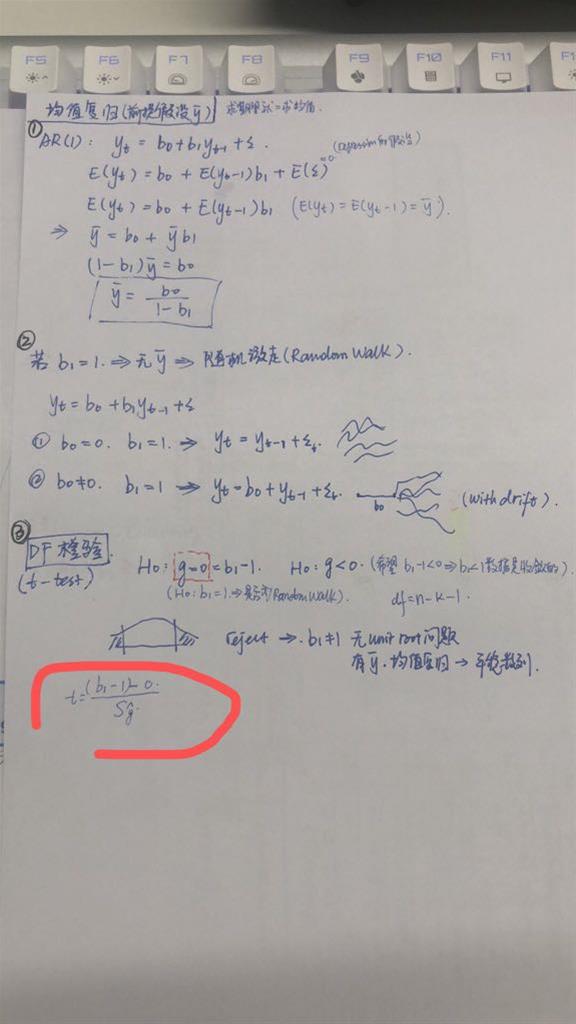 F5 F6 F7 F8 F9 F10 F11 F1
均值复归(前提假设ȳ) 求期望式=求均值.
① AR(1): yt = b0+b1yt-1+ε.
E(yt) = b0 + E(yt-1)b1 + E(ε) =0.
E(yt) = b0 + E(yt-1)b1 (E(yt)=E(yt-1)=ȳ).
⇒ ȳ = b0 + ȳb1
(1-b1)ȳ = b0
ȳ = b0/(1-b1)
②
若 b1=1. ⇒ 无ȳ ⇒ 随机游走(Random Walk).
yt = b0+b1yt-1+ε
① b0=0. b1=1. ⇒ yt = yt-1+εt.
② b0≠0. b1=1 ⇒ yt=b0+yt-1+εt. b0 (with drift).
③
DF检验. H0: g=0=b1-1. H0: g<0. (希望 b1-1<0⇒b1<1数据是收敛的)
(t-test) (H0: b1=1.⇒是否有Random Walk). df=n-k-1.
reject → b1≠1 无unit root问题
有ȳ.均值复归→平稳数列.
t=((b1-1)-0.)/Sg.